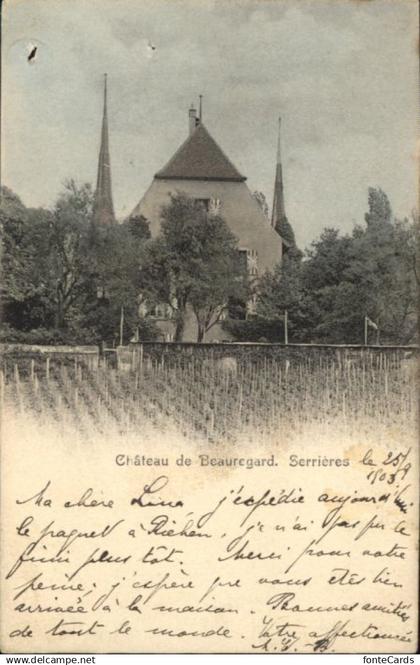 Château de Beauregard. Serrières
le 25/9
1903
Ma chère Lina j'expédie aujourd'hui
le paquet à Riehen, je n'ai pas pu le
finir plus tôt. Merci pour votre
peine; j'espère que vous êtes bien
arrivée à la maison. Bonnes amitiés
de tout le monde. Votre affectionnée
www.fonteCards.com